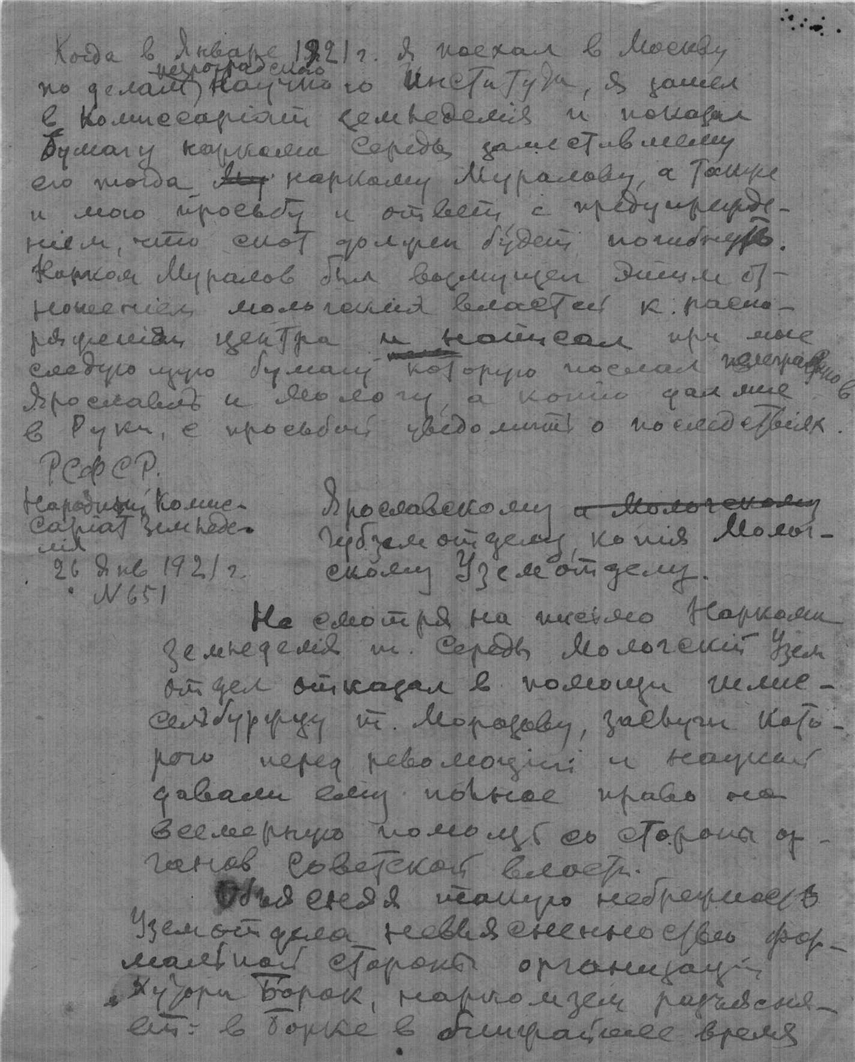 Когда в Январе 1921 г. я поехал в Москву
петроградского
по делам научного Института, я зашел
в Комиссаріат земледелія и показал
бумагу наркома Середы заместившему
его тогда наркому Муралову, а также
и мою просьбу и ответ с предупрежде-
ніем, что скот должен будет погибнуть.
Нарком Муралов был возмущен этим от-
ношеніем мологских властей к распо-
ряженіям центра и написал при мне
следующую бумагу которую послал телеграфно в
Ярославль и Мологу, а копию дал мне
в руки, с просьбой уведомить о последствіях.
РСФСР.
Народный Комис-
саріат Земледе-
лія
26 Янв 1921 г.
N 651
Ярославскому а Мологскому
Губземотделу, копія Молог-
скому Уземотделу.
Не смотря на письмо Наркома
земледелія т. Середы Мологскій Узем
отдел отказал в помощи шлис-
сельбуржцу т. Морозову, заслуги кото-
рого перед революціей и наукой
давали ему полное право на
всемерную помощь со стороны ор-
ганов Советской власти.
Объясняя такую небрежность
Уземотдела невыясненностью фор-
мальной стороны организаціи
"Хутора Борок, наркомзем разъясня-
ет: в Борке в ближайшее время